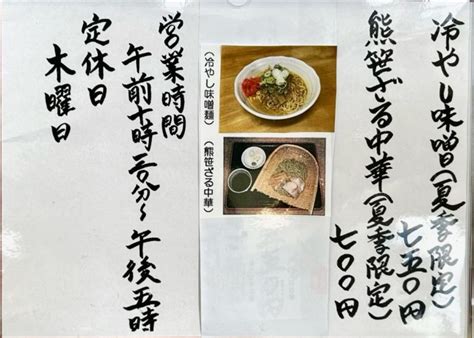 冷やし味噌(夏季限定)
七五〇円
熊笹ざる中華(夏季限定)
七〇〇円
(冷やし味噌麺)
(熊笹ざる中華)
営業時間
午前十時三〇分〜午後五時
定休日
木曜日